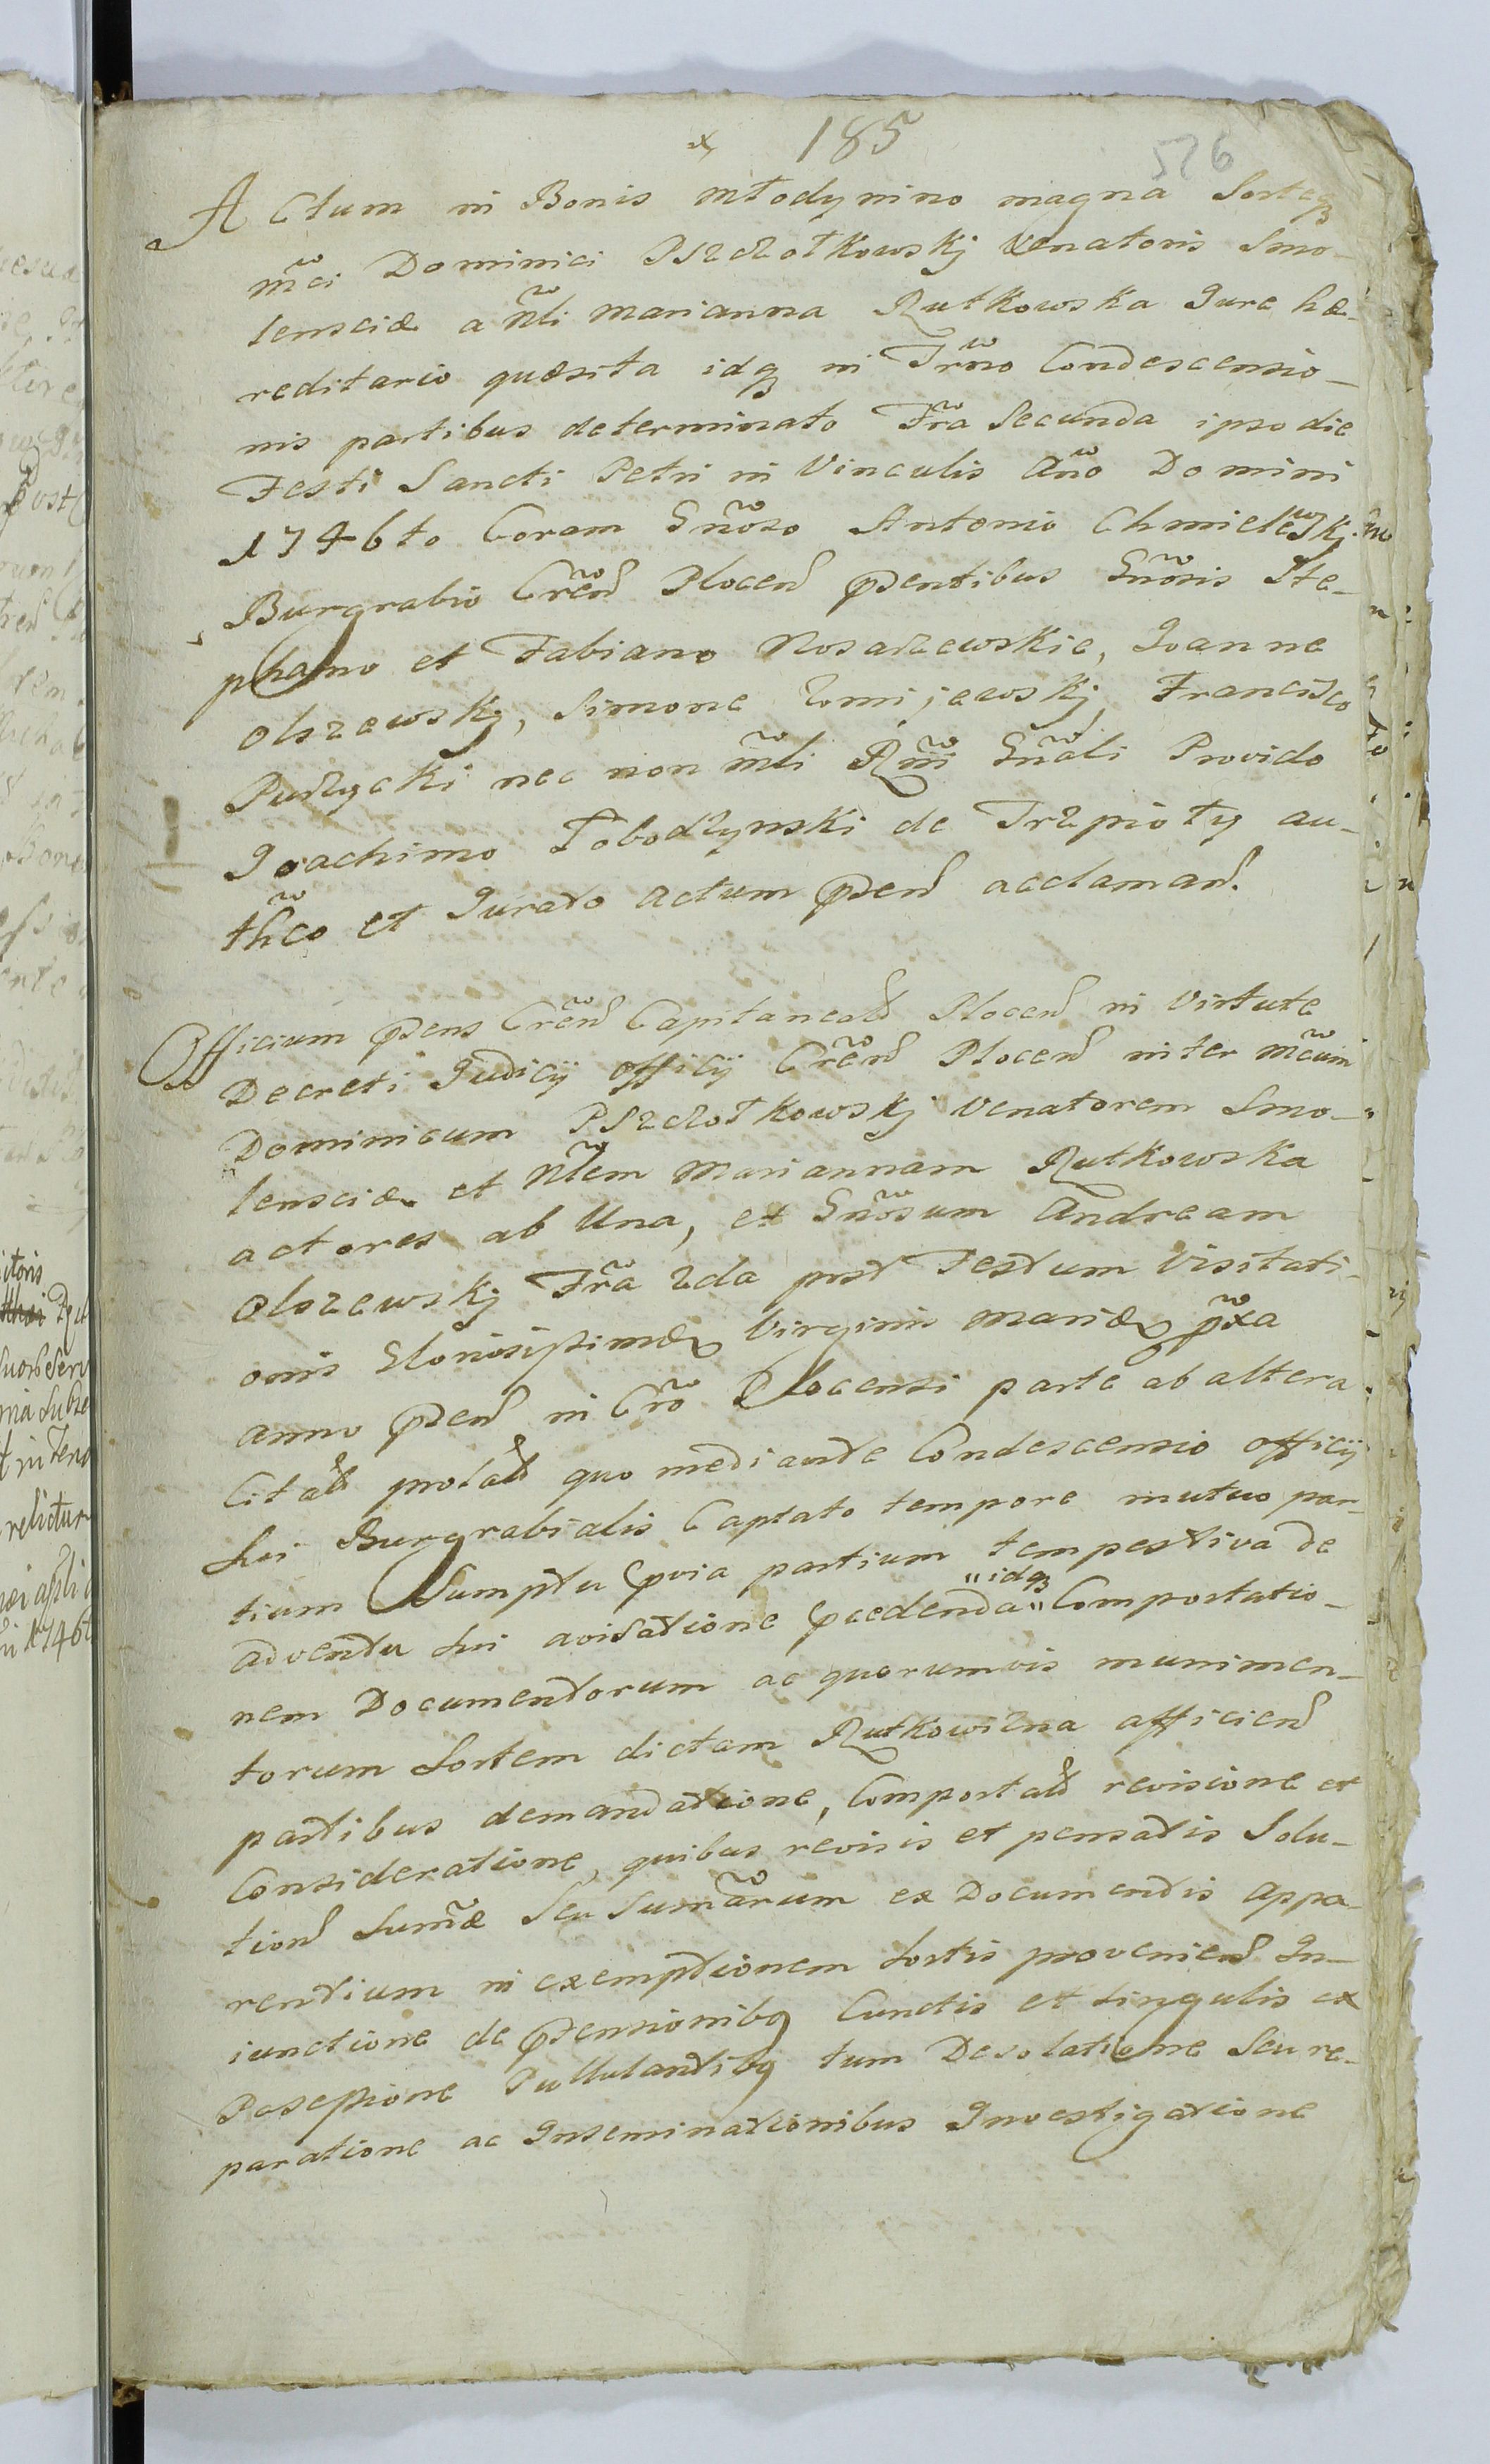 185
526
Actum in Bonis Młodynino magna Sorteqз
Mc̃i Dominici Pszczołkowskj Venatoris Smo-
lensciæ a Nl̃i Marianna Rutkowska Jure hæ-
reditario quæsita idqз in Tr̃no Condescensio-
nis partibus determinato Fr̃a Secunda ipso die
Festi Sancti Petri in Vinculis Año Domini
1746to Coram Gñoso Antonio Chmielewskj
Burgrabio Crẽn Plocen pꝛentibus Gñosis Ste-
phano et Fabiano Nosarzewskie, Joanne
Olszewskj, Simone Zomijewskj Francisco
Puszycki nec non ml̃i Rm̃i Gñali Provido
Joachimo Łobodzynski de Trzpioty au-
th̃co et Jurato actum pꝛen acclaman.
Officium pꝛens Crẽn Capitaneal Plocen in Virtute
Decreti Judicij officij Crẽn Plocen inter Mc̃um
Dominicum Pszczołkowskj Venatorem Smo-
lensciæ et Nl̃em Mariannam Rutkowska
actores ab Una, et Gñosum Andream
Olszewskj Fr̃a 2da post Festum Visitati-
onis Gloriosissimæ Virginis Mariæ px̃a
anno pꝛen in Crõ Plocensi parte ab altera
Citat prolat quo mediante Condescensio officij
sui Burgrabialis Captato tempore mutuo par-
tium Sumptu pvia partium tempestiva de
adventu sui avisatione pcedenda "idqз" Comportatio-
nem Documentorum ac quorumvis munimen-
torum Sortem dictam Rutkowizna afficien
partibus demandatione, Comportat revisione et
Consideratione, quibus revisis et pensatis Solu-
tion Sum̃æ Seu Sum̃arum ex Documentis appa-
rentium in exemptionem Sortis provenien In-
iunctione de pꝛensionibq Cunctis et singulis ex
Possessione Pullulantibq tum Desolatione Seu re-
paratione ac Inseminationibus Investigatione